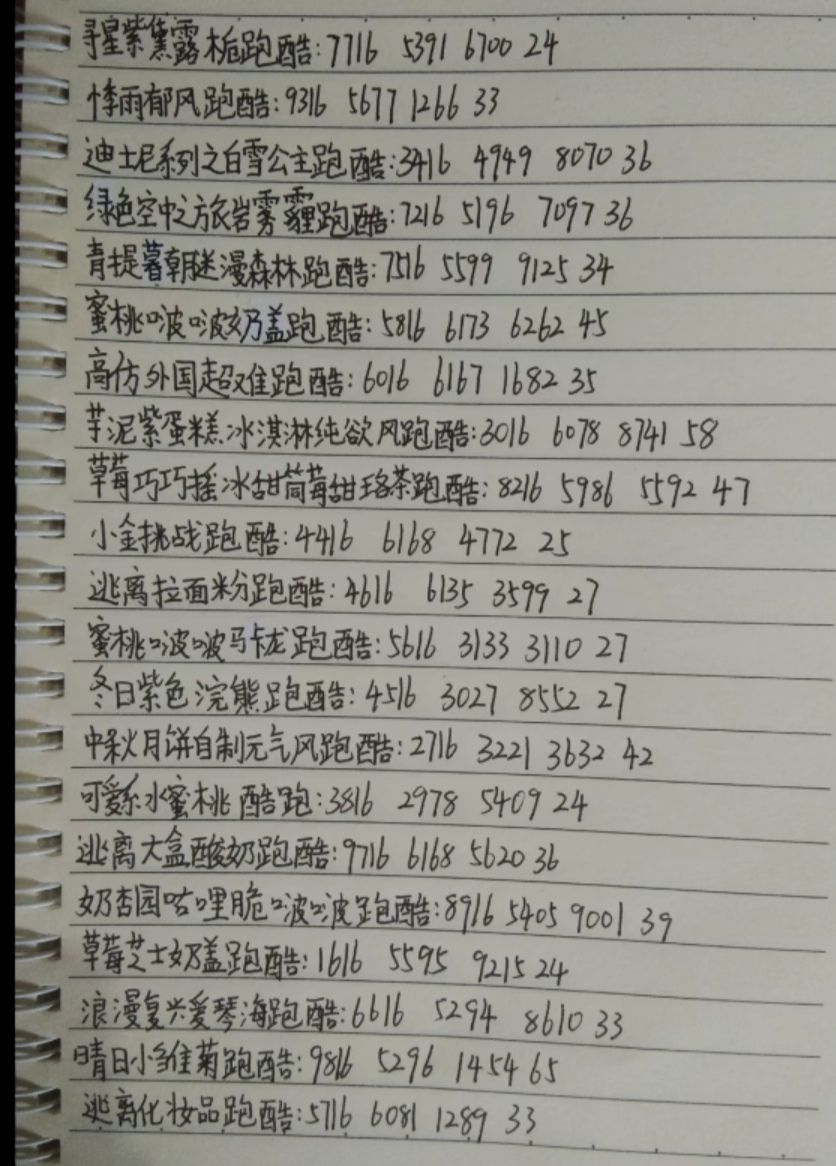 寻星紫黛露栀跑酷:7716 5391 6700 24
悸雨郁风跑酷:9316 5677 1266 33
迪士尼系列之白雪公主跑酷:3416 4949 8070 36
绿色空中之旅岩雾霾跑酷:7216 5196 7097 36
青提暮朝腿漫森林跑酷:7516 5599 9125 34
蜜桃啵啵奶盖跑酷:5816 6173 6262 45
高仿外国超难跑酷:6016 6167 1682 35
芋泥紫蛋糕冰淇淋纯欲风跑酷:3016 6078 8741 58
草莓巧巧摇冰甜筒莓甜珞茶跑酷:8216 5986 5592 47
小金挑战跑酷:4416 6168 4772 25
逃离拉面米分跑酷:4616 6135 3599 27
蜜桃啵啵马卡龙跑酷:5616 3133 3110 27
冬日紫色浣熊跑酷:4516 3027 8552 27
中秋月饼自制元气风跑酷:2716 3221 3632 42
可爱系水蜜桃酷跑:3816 2978 5409 24
逃离大盒酸奶跑酷:9716 6168 5620 36
奶杏园咕哩脆啵啵跑酷:8916 5405 9001 39
草莓芝士奶盖跑酷:1616 5595 9215 24
浪漫复兴爱琴海跑酷:6616 5294 8610 33
晴日小雏菊跑酷:9816 5296 1454 65
逃离化妆品跑酷:5716 6081 1289 33